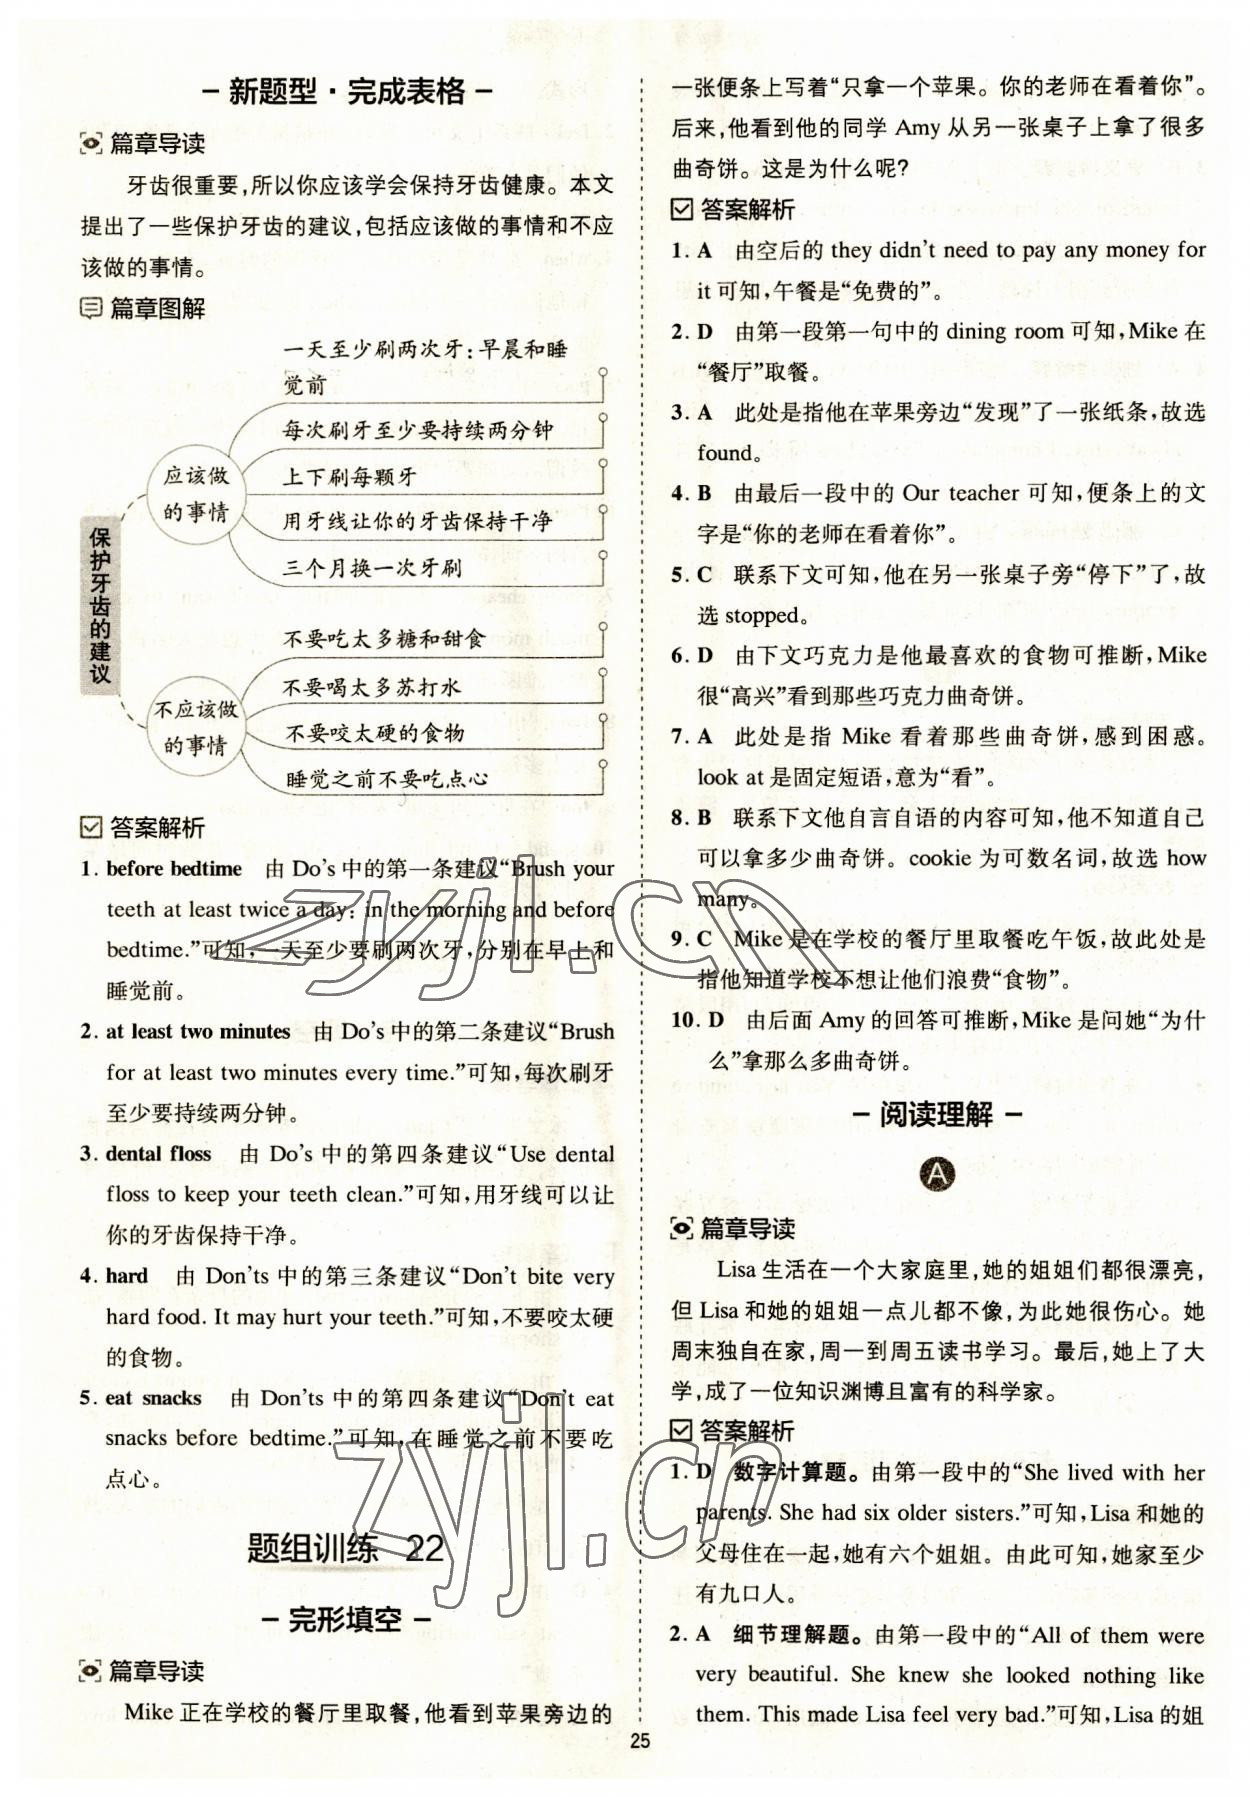 – 新题型·完成表格 –
篇章导读
牙齿很重要,所以你应该学会保持牙齿健康。本文
提出了一些保护牙齿的建议,包括应该做的事情和不应
该做的事情。
篇章图解
保护牙齿的建议
应该做
的事情
一天至少刷两次牙:早晨和睡
觉前
每次刷牙至少要持续两分钟
上下刷每颗牙
用牙线让你的牙齿保持干净
三个月换一次牙刷
不应该做
的事情
不要吃太多糖和甜食
不要喝太多苏打水
不要咬太硬的食物
睡觉之前不要吃点心
答案解析
1. before bedtime 由 Do's 中的第一条建议“Brush your
teeth at least twice a day: in the morning and before
bedtime.”可知,一天至少要刷两次牙,分别在早上和
睡觉前。
2. at least two minutes 由 Do's 中的第二条建议“Brush
for at least two minutes every time.”可知,每次刷牙
至少要持续两分钟。
3. dental floss 由 Do's 中的第四条建议“Use dental
floss to keep your teeth clean.”可知,用牙线可以让
你的牙齿保持干净。
4. hard 由 Don'ts 中的第三条建议“Don't bite very
hard food. It may hurt your teeth.”可知,不要咬太硬
的食物。
5. eat snacks 由 Don'ts 中的第四条建议“Don't eat
snacks before bedtime.”可知,在睡觉之前不要吃
点心。
题组训练 22
– 完形填空 –
篇章导读
Mike 正在学校的餐厅里取餐,他看到苹果旁边的
一张便条上写着“只拿一个苹果。你的老师在看着你”。
后来,他看到他的同学 Amy 从另一张桌子上拿了很多
曲奇饼。这是为什么呢?
答案解析
1. A 由空后的 they didn't need to pay any money for
it 可知,午餐是“免费的”。
2. D 由第一段第一句中的 dining room 可知,Mike 在
“餐厅”取餐。
3. A 此处是指他在苹果旁边“发现”了一张纸条,故选
found。
4. B 由最后一段中的 Our teacher 可知,便条上的文
字是“你的老师在看着你”。
5. C 联系下文可知,他在另一张桌子旁“停下”了,故
选 stopped。
6. D 由下文巧克力是他最喜欢的食物可推断,Mike
很“高兴”看到那些巧克力曲奇饼。
7. A 此处是指 Mike 看着那些曲奇饼,感到困惑。
look at 是固定短语,意为“看”。
8. B 联系下文他自言自语的内容可知,他不知道自己
可以拿多少曲奇饼。cookie 为可数名词,故选 how
many。
9. C Mike 是在学校的餐厅里取餐吃午饭,故此处是
指他知道学校不想让他们浪费“食物”。
10. D 由后面 Amy 的回答可推断,Mike 是问她“为什
么”拿那么多曲奇饼。
– 阅读理解 –
A
篇章导读
Lisa 生活在一个大家庭里,她的姐姐们都很漂亮,
但 Lisa 和她的姐姐一点儿都不像,为此她很伤心。她
周末独自在家,周一到周五读书学习。最后,她上了大
学,成了一位知识渊博且富有的科学家。
答案解析
1. D 数字计算题。由第一段中的“She lived with her
parents. She had six older sisters.”可知,Lisa 和她的
父母住在一起,她有六个姐姐。由此可知,她家至少
有九口人。
2. A 细节理解题。由第一段中的“All of them were
very beautiful. She knew she looked nothing like
them. This made Lisa feel very bad.”可知,Lisa 的姐
25
zyjl.cn
zyjl.cn